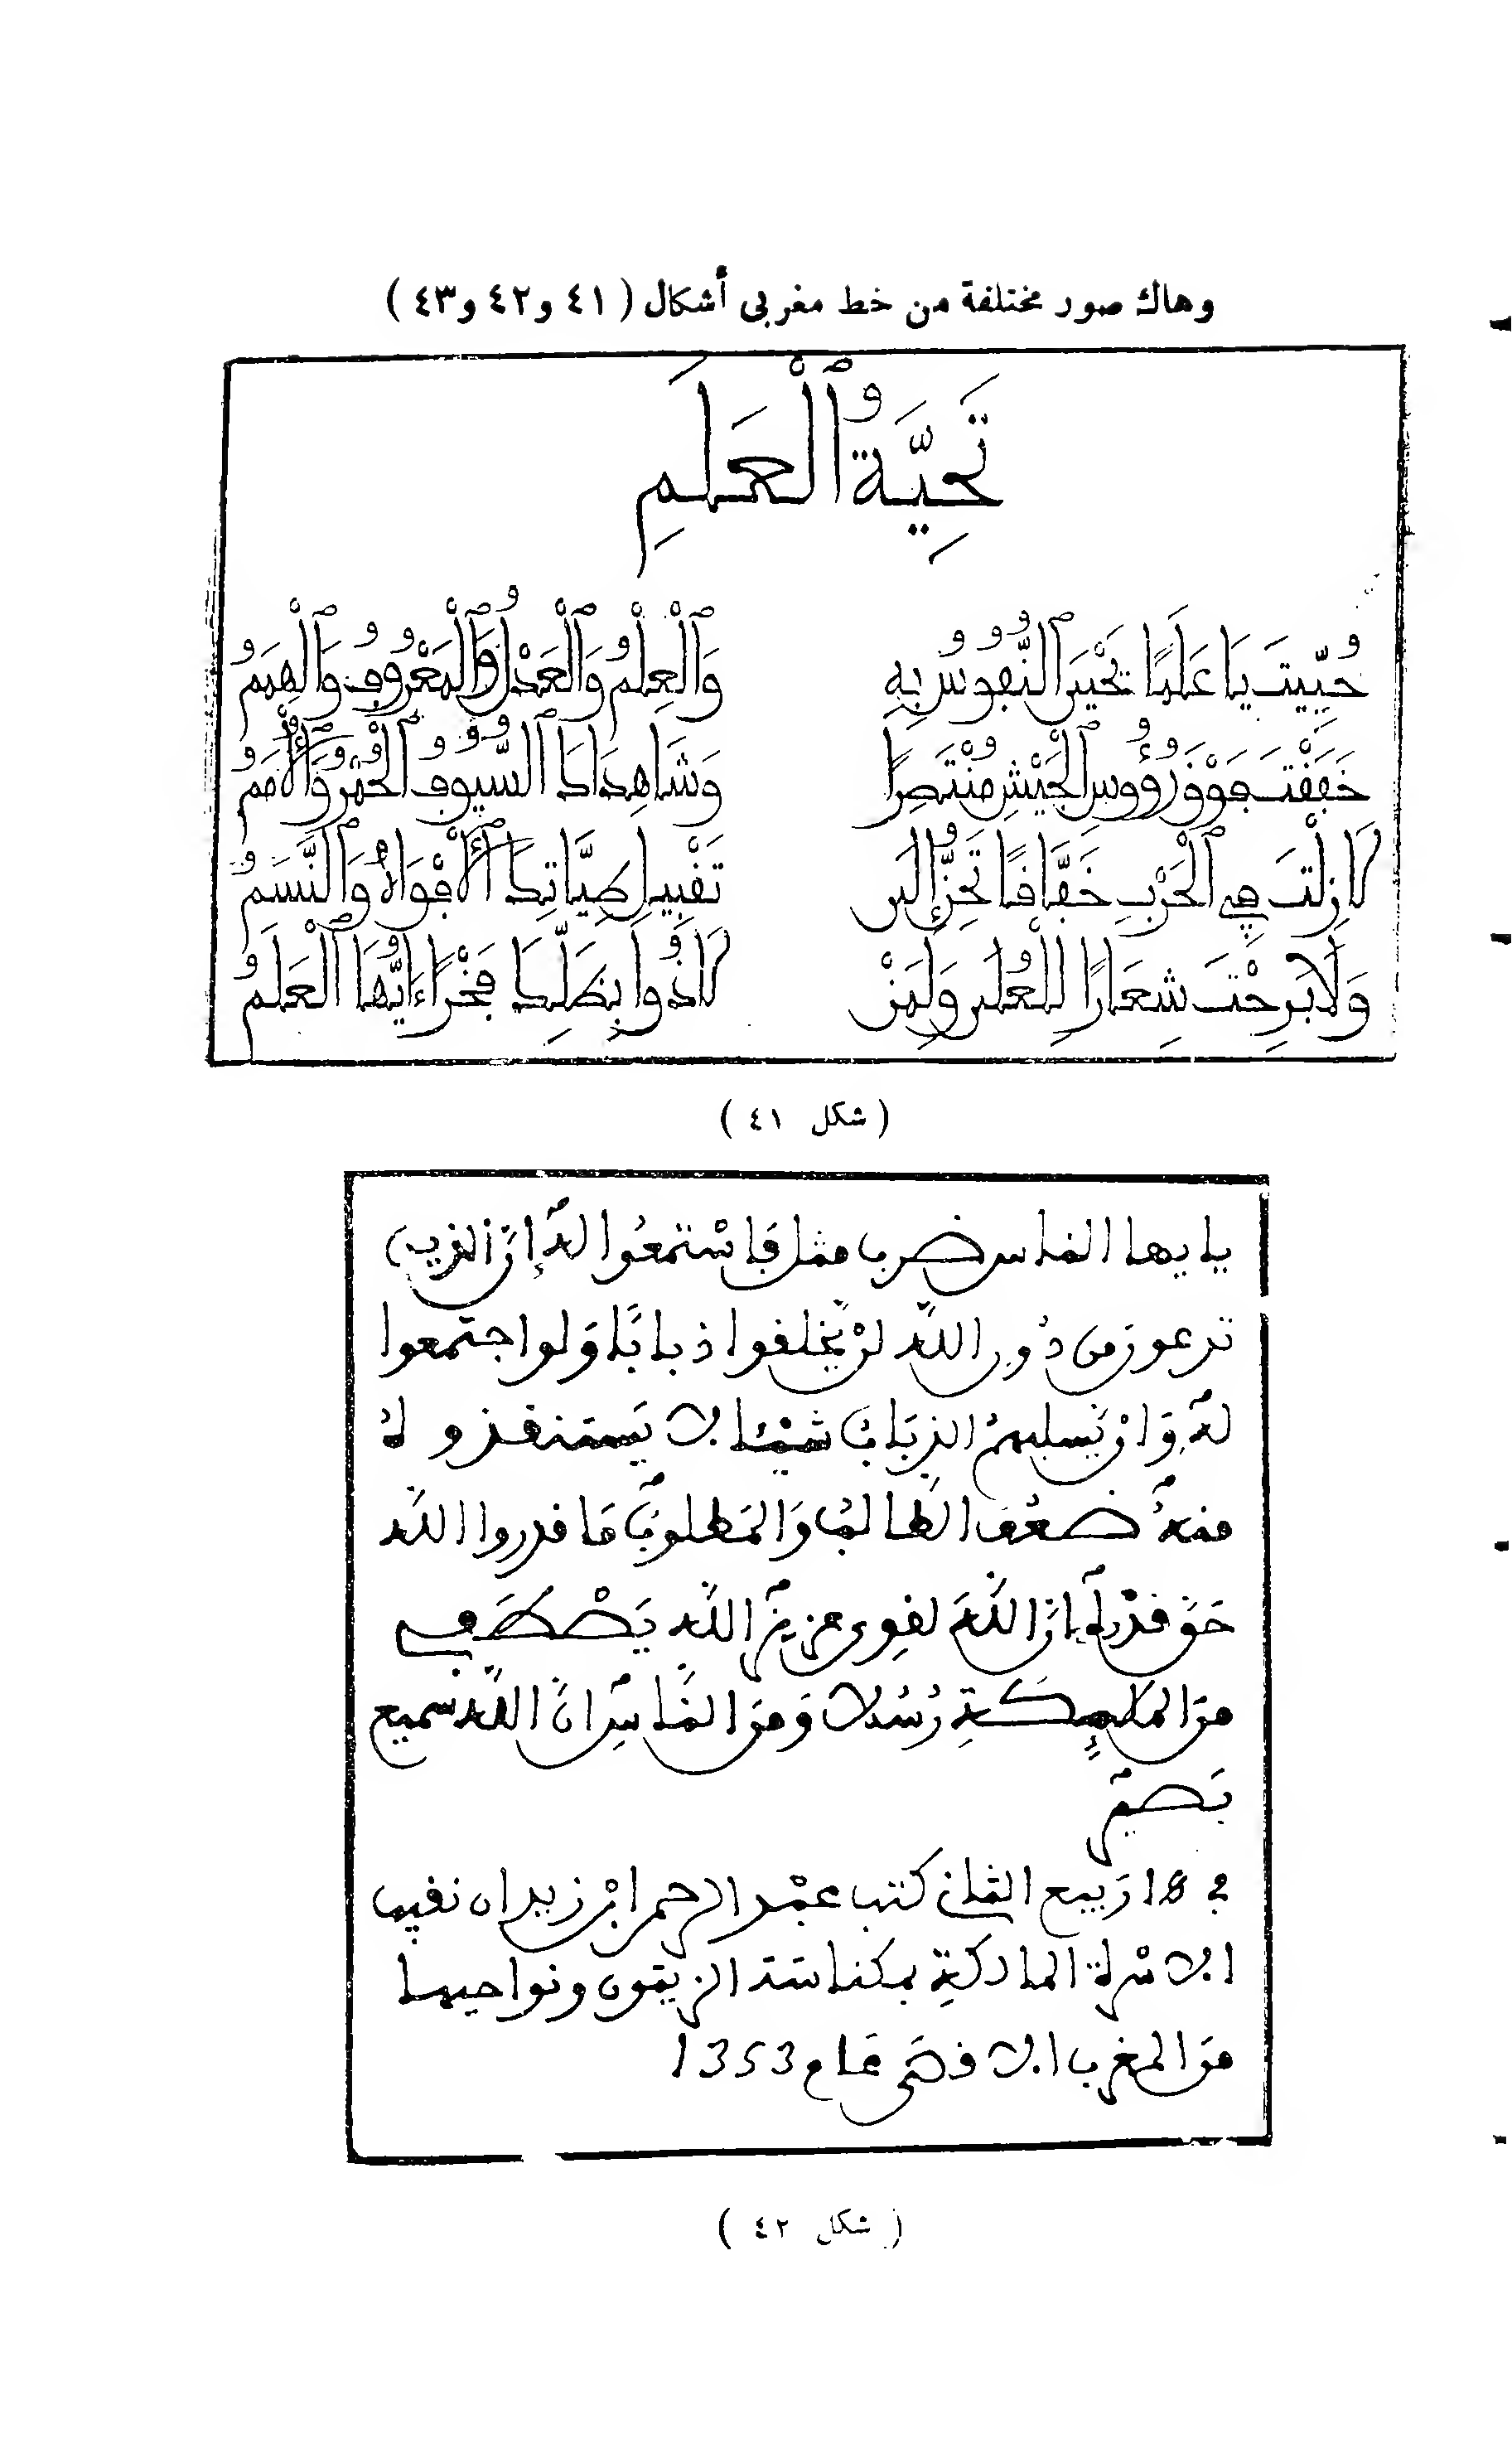 وهاك صور مختلفة من خط مغربى أشكال ( ٤١ و٤٢ و٤٣ )
تَحِيَّةُ ٱلْعَلَمِ
حُيِّيتَ يَا عَلَمًا تَحْيَى ٱلنُّفُوسُ بِهِ وَٱلْعِلْمُ وَٱلْعَدْلُ وَٱلْمَعْرُوفُ وَٱلْهِمَمُ
خَفَقْتَ فَوْقَ رُؤُوسِ ٱلْجَيْشِ مُنْتَصِرًا وَشَاهِدَاكَ ٱلسُّيُوفُ ٱلْحُمْرُ وَٱلْأُمَمُ
لَا زِلْتَ فِي ٱلْحَرْبِ خَفَّاقًا تَحِنُّ إِلَى تَقْبِيلِ طَيَّاتِكَ ٱلْأَفْوَاهُ وَٱلنَّسَمُ
وَلَا بَرِحْتَ شِعَارًا لِلْعُلَى وَلِمَنْ لَاذُوا بِظِلِّكَ فَخْرًا ءَايُّهَا ٱلْعَلَمُ
( شكل ٤١ )
يايها الناس ضرب مثل فاسْتمعُوا لهُ إنَّ الذين
تدعون من دُون اللَّه لنْ يَّخلقوا ذبابًا وَلو اجتمعوا
لهُ وَانْ يَّسلبهمُ الذبَابُ شيْئا لا يَستنقذوهُ
منهُ ضعُفَ الطَّالبُ وَالمَطلوبُ مَا قدروا اللَّه
حَقَّ قدْرِهِ إنَّ اللَّهَ لقوِى عزيزٌ اللَّه يَصْطَفِي
منَ الملَـٰئِكَةِ رُسُلا وَمنَ النَّاسِ انَّ اللَّه سميع
بَصيرٌ
في 18 رَبيع الثاني كتب عبْد الرحمن ابْن زيدان نقيب
الاسْرة المالكةِ بمكناسة الزيتون ونواحيها
منَ المغرب الاقصَى عام 1353
( شكل ٤٢ )